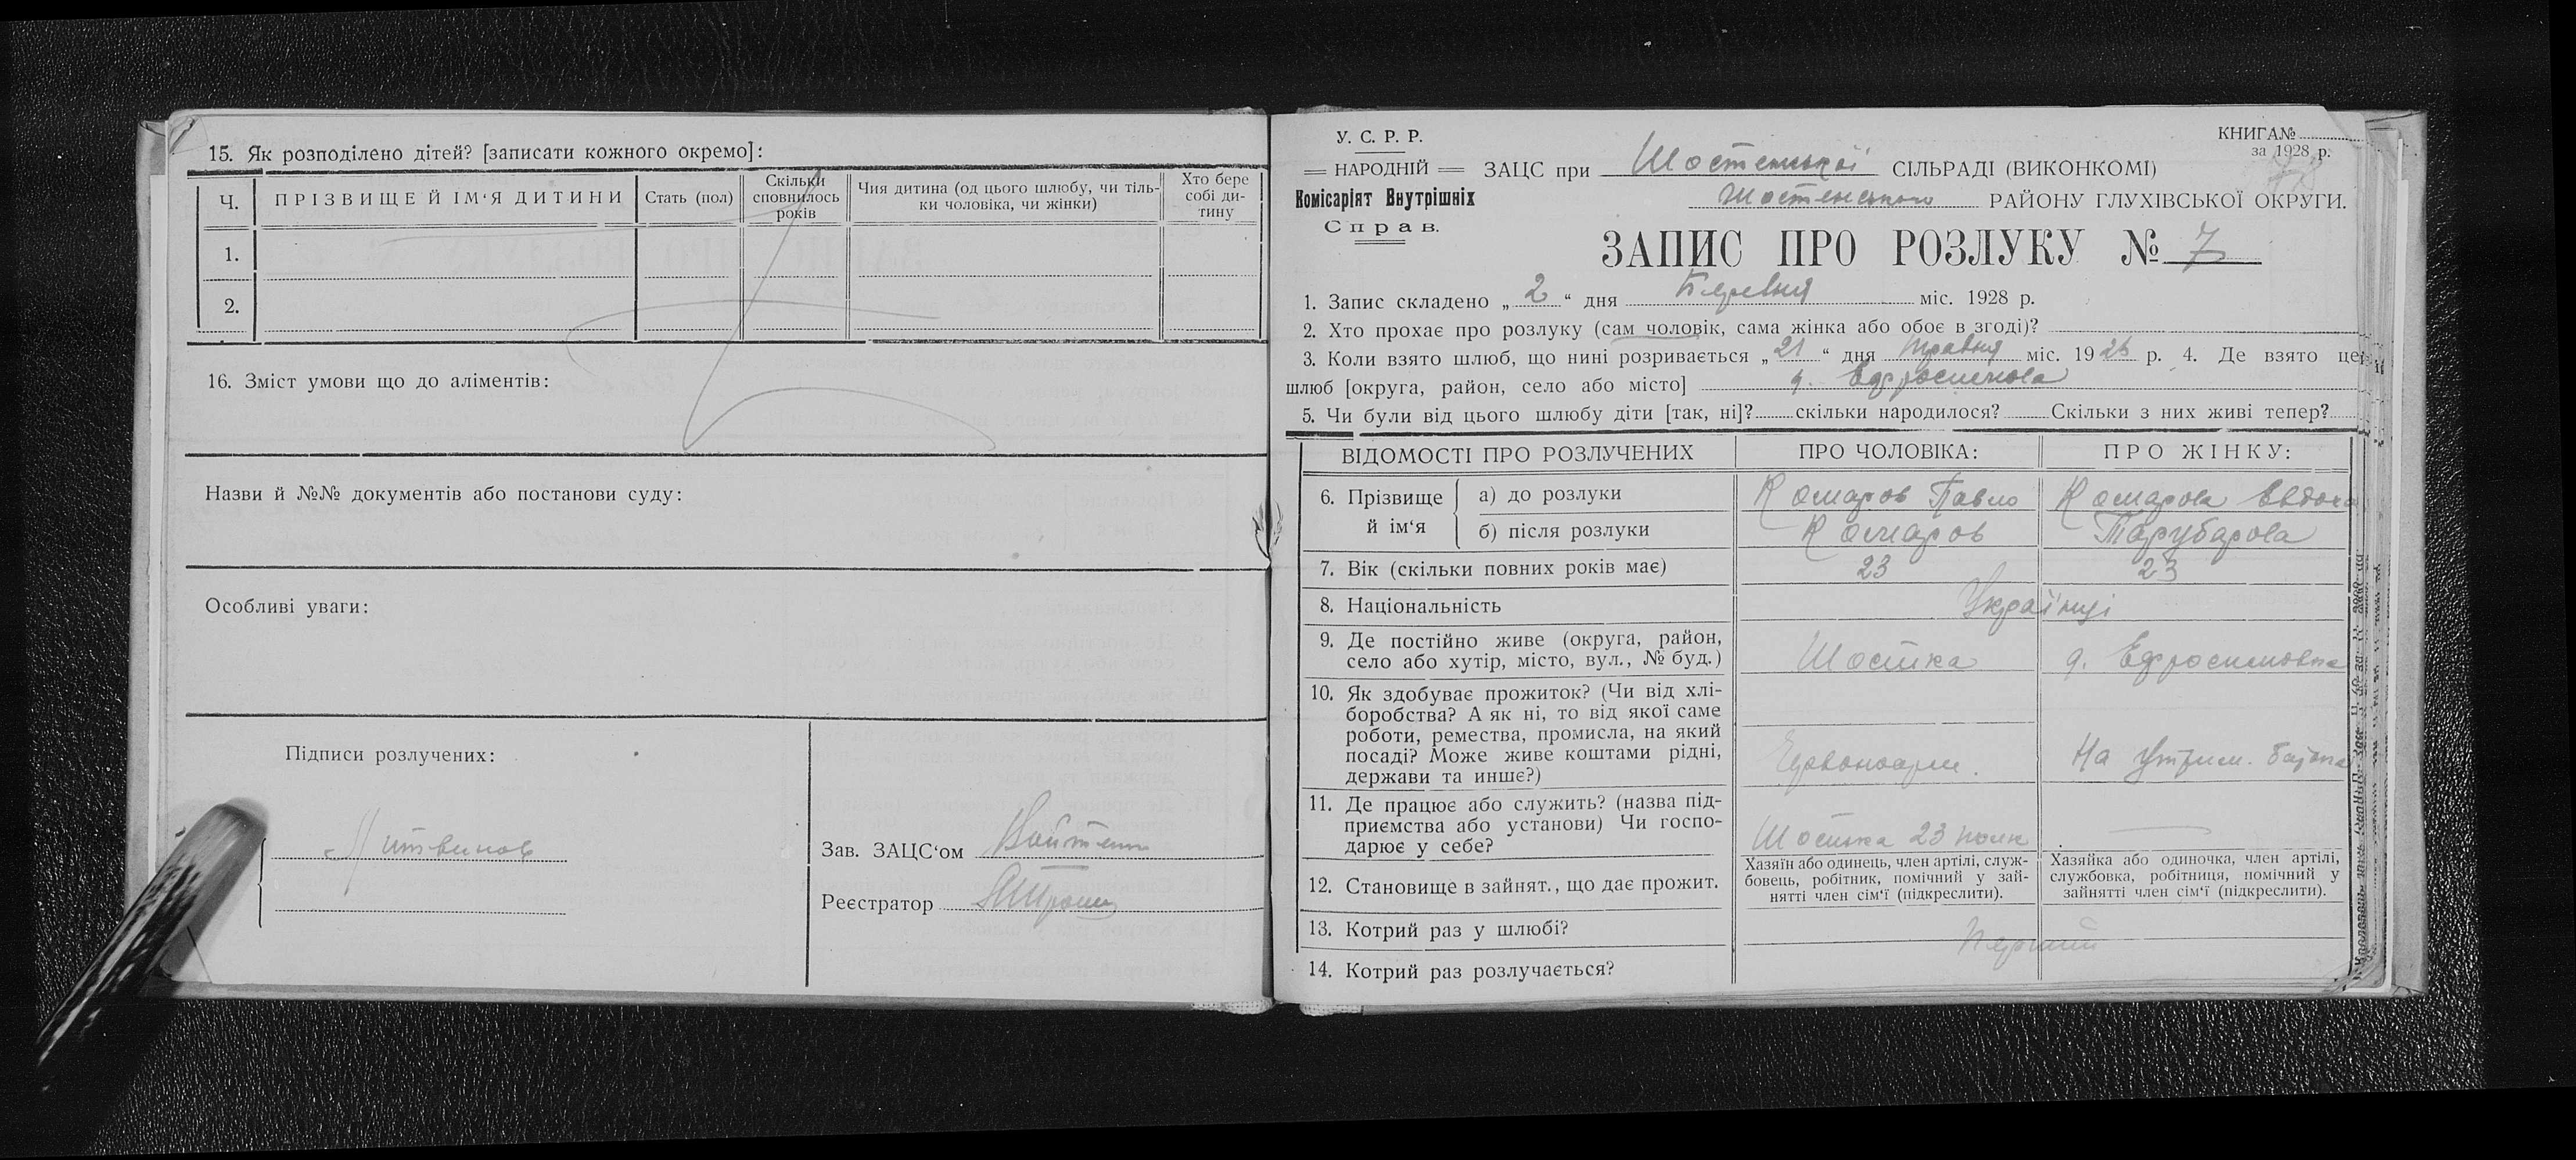 15. Як розподілено дітей? [записати кожного окремо]:
Ч. ПРІЗВИЩЕ Й ІМ‘Я ДИТИНИ Стать (пол) Скільки сповнилось років Чия дитина (од цього шлюбу, чи тільки чоловіка, чи жінки) Хто бере собі дитину
1.
2.
16. Зміст умови що до аліментів:
Назви й №№ документів або постанови суду:
Особливі уваги:
Підписи розлучених:
Литвинов
Зав. ЗАЦС‘ом
Реєстратор
У. С. Р. Р.
НАРОДНІЙ
Комісаріят Внутрішніх
Справ.
КНИГА№
за 1928 р.
ЗАЦС при Шостенської СІЛЬРАДІ (ВИКОНКОМІ)
Шостенського РАЙОНУ ГЛУХІВСЬКОЇ ОКРУГИ.
ЗАПИС ПРО РОЗЛУКУ № 7
1. Запис складено „2“ дня міс. 1928 р.
2. Хто прохає про розлуку (сам чоловік, сама жінка або обоє в згоді)?
3. Коли взято шлюб, що нині розривається „21“ дня травня міс. 1926 р. 4. Де взято це
шлюб [округа, район, село або місто]
5. Чи були від цього шлюбу діти [так, ні]? скільки народилося? Скільки з них живі тепер?
ВІДОМОСТІ ПРО РОЗЛУЧЕНИХ ПРО ЧОЛОВІКА: ПРО ЖІНКУ:
6. Прізвище й ім‘я а) до розлуки Комаров Павло Комарова
б) після розлуки Комаров Тарубарова
7. Вік (скільки повних років має) 23 23
8. Національність Українці
9. Де постійно живе (округа, район,
село або хутір, місто, вул., № буд.) Шостка д. Ефросимовка
10. Як здобуває прожиток? (Чи від хлі-
боробства? А як ні, то від якої саме
роботи, ремества, промисла, на який
посаді? Може живе коштами рідні,
держави та инше?) Червоноарм. На утрим. батька
11. Де працює або служить? (назва під-
приємства або установи) Чи госпо-
дарює у себе? Шостка 23 полк
12. Становище в зайнят., що дає прожит.
Хазяїн або одинець, член артілі, служ-
бовець, робітник, помічний у зай-
нятті член сім‘ї (підкреслити).
Хазяйка або одиночка, член артілі,
службовка, робітниця, помічний у
зайнятті член сім‘ї (підкреслити).
13. Котрий раз у шлюбі? Перший
14. Котрий раз розлучається?